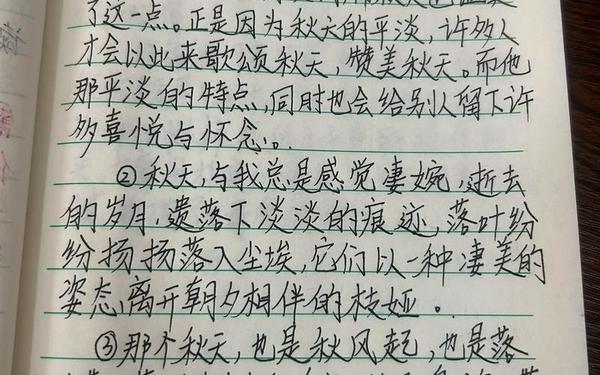 了这一点。正是因为秋天的平淡,许多人
才会以此来歌颂秋天,赞美秋天。而他
那平淡的特点,同时也会给别人留下许
多喜悦与怀念。
②秋天,与我总是感觉凄婉,逝去
的岁月,遗落下淡淡的痕迹,落叶纷
纷扬扬落入尘埃,它们以一种凄美的
姿态,离开朝夕相伴的枝娅。
③那个秋天,也是秋风起,也是落